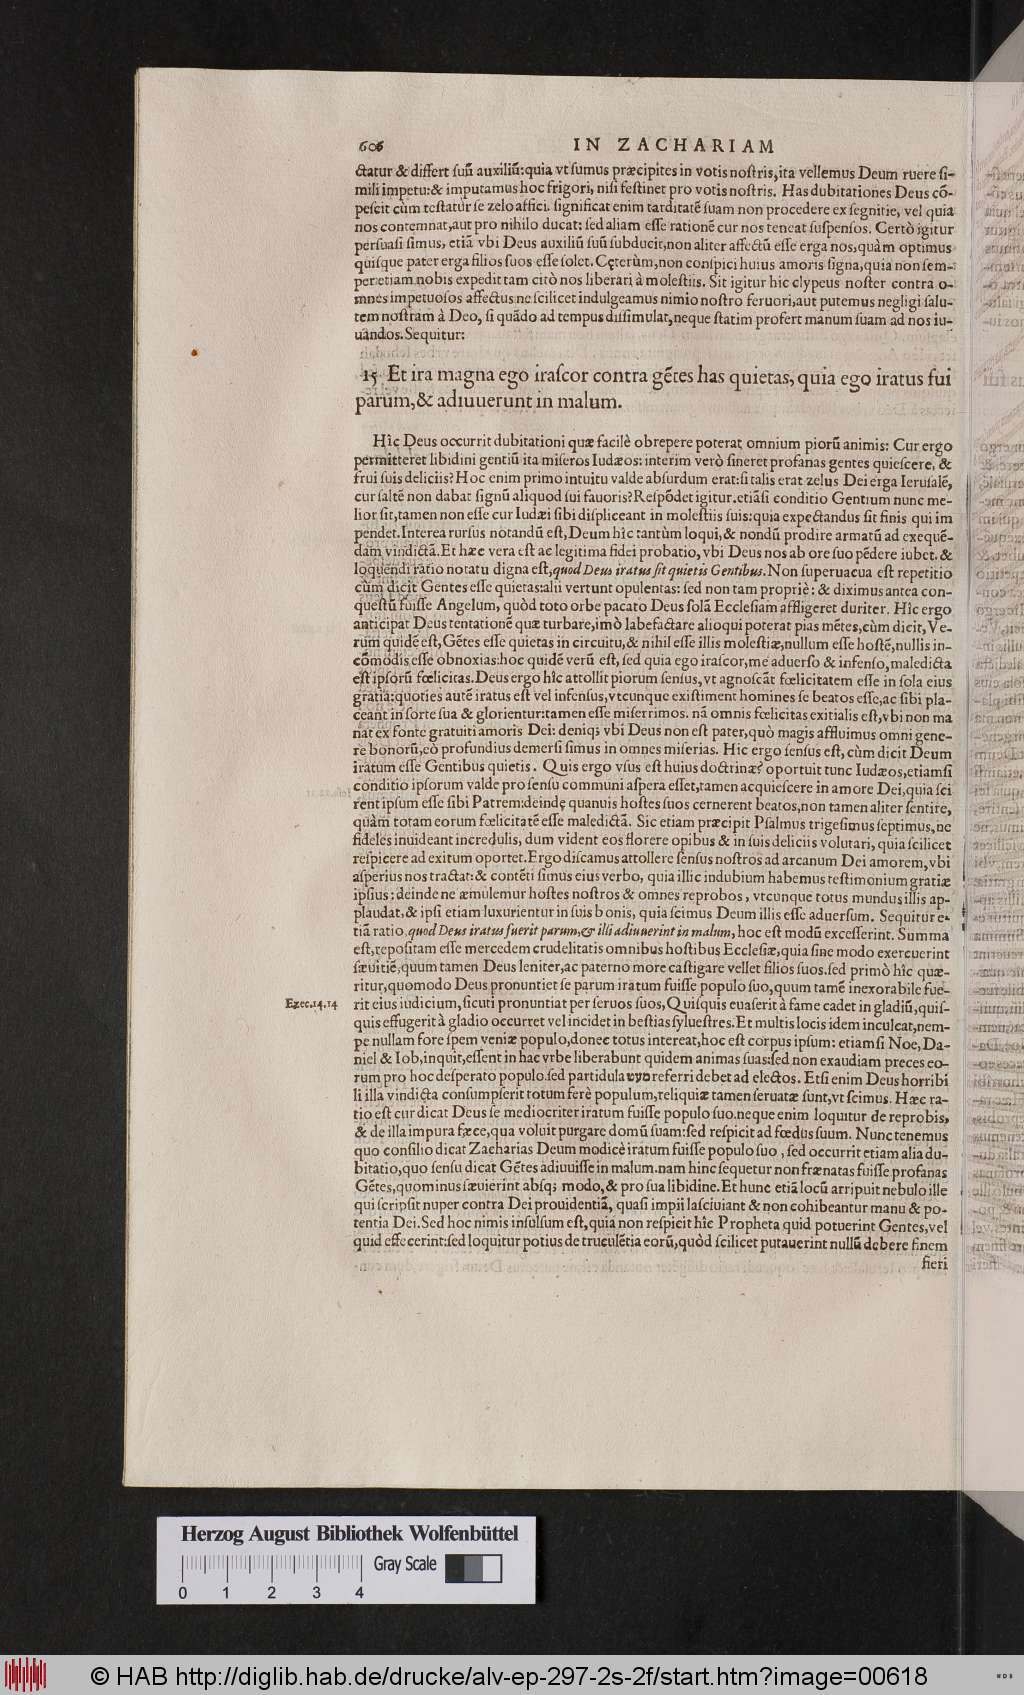 606 IN ZACHARIAM
ctatur & differt suũ auxiliũ: quia vt sumus præcipites in votis nostris, ita vellemus Deum ruere si-
mili impetu: & imputamus hoc frigori, nisi festinet pro votis nostris. Has dubitationes Deus cõ-
pescit cùm testatur se zelo affici. significat enim tarditatẽ suam non procedere ex segnitie, vel quia
nos contemnat, aut pro nihilo ducat: sed aliam esse rationẽ cur nos teneat suspensos. Certò igitur
persuasi simus, etiã vbi Deus auxiliũ suũ subducit, non aliter affectũ esse erga nos, quàm optimus
quisque pater erga filios suos esse solet. Cęterùm, non conspici huius amoris signa, quia non sem-
per etiam nobis expedit tam citò nos liberari à molestiis. Sit igitur hic clypeus noster contra o-
mnes impetuosos affectus ne scilicet indulgeamus nimio nostro feruori, aut putemus negligi salu-
tem nostram à Deo, si quãdo ad tempus dissimulat, neque statim profert manum suam ad nos iu-
uandos. Sequitur:
15 Et ira magna ego irascor contra gẽtes has quietas, quia ego iratus fui
parum, & adiuuerunt in malum.
Hîc Deus occurrit dubitationi quæ facilè obrepere poterat omnium piorũ animis: Cur ergo
permitteret libidini gentiũ ita miseros Iudæos: interim verò sineret profanas gentes quiescere, &
frui suis deliciis? Hoc enim primo intuitu valde absurdum erat: si talis erat zelus Dei erga Ierusalẽ,
cur saltẽ non dabat signũ aliquod sui fauoris? Respõdet igitur. etiãsi conditio Gentium nunc me-
lior sit, tamen non esse cur Iudæi sibi displiceant in molestiis suis: quia expectandus sit finis qui im
pendet. Interea rursus notandũ est, Deum hîc tantùm loqui, & nondũ prodire armatũ ad exequẽ-
dam vindictã. Et hæc vera est ac legitima fidei probatio, vbi Deus nos ab ore suo pẽdere iubet. &
loquendi ratio notatu digna est, quod Deus iratus sit quietis Gentibus. Non superuacua est repetitio
cùm dicit Gentes esse quietas: alii vertunt opulentas: sed non tam propriè: & diximus antea con-
questũ fuisse Angelum, quòd toto orbe pacato Deus solã Ecclesiam affligeret duriter. Hîc ergo
anticipat Deus tentationẽ quæ turbare, imò labefactare alioqui poterat pias mẽtes, cùm dicit, Ve-
rum quidẽ est, Gẽtes esse quietas in circuitu, & nihil esse illis molestiæ, nullum esse hostẽ, nullis in-
cõmodis esse obnoxias: hoc quidẽ verũ est, sed quia ego irascor, me aduerso & infenso, maledicta
est ipsorũ fœlicitas. Deus ergo hîc attollit piorum sensus, vt agnoscãt fœlicitatem esse in sola eius
gratia: quoties autẽ iratus est vel infensus, vtcunque existiment homines se beatos esse, ac sibi pla-
ceant in sorte sua & glorientur: tamen esse miserrimos. nã omnis fœlicitas exitialis est, vbi non ma
nat ex fonte gratuiti amoris Dei: deniq; vbi Deus non est pater, quò magis affluimus omni gene-
re bonorũ, eò profundius demersi simus in omnes miserias. Hic ergo sensus est, cùm dicit Deum
iratum esse Gentibus quietis. Quis ergo vsus est huius doctrinæ? oportuit tunc Iudæos, etiamsi
conditio ipsorum valde pro sensu communi aspera esset, tamen acquiescere in amore Dei, quia sci
rent ipsum esse sibi Patrem: deindę quanuis hostes suos cernerent beatos, non tamen aliter sentire,
quàm totam eorum fœlicitatẽ esse maledictã. Sic etiam præcipit Psalmus trigesimus septimus, ne
fideles inuideant incredulis, dum vident eos florere opibus & in suis deliciis volutari, quia scilicet
respicere ad exitum oportet. Ergo discamus attollere sensus nostros ad arcanum Dei amorem, vbi
asperius nos tractat: & contẽti simus eius verbo, quia illic indubium habemus testimonium gratiæ
ipsius: deinde ne æmulemur hostes nostros & omnes reprobos, vtcunque totus mundus illis ap-
plaudat, & ipsi etiam luxurientur in suis bonis, quia scimus Deum illis esse aduersum. Sequitur e-
tiã ratio, quod Deus iratus fuerit parum, & illi adiuuerint in malum, hoc est modũ excesserint. Summa
est, repositam esse mercedem crudelitatis omnibus hostibus Ecclesiæ, quia sine modo exercuerint
sæuitiẽ, quum tamen Deus leniter, ac paterno more castigare vellet filios suos. sed primò hîc quæ-
ritur, quomodo Deus pronuntiet se parum iratum fuisse populo suo, quum tamẽ inexorabile fue-
Ezec. 14. 14 rit eius iudicium, sicuti pronuntiat per seruos suos, Quisquis euaserit à fame cadet in gladiũ, quis-
quis effugerit à gladio occurret vel incidet in bestias syluestres. Et multis locis idem inculcat, nem-
pe nullam fore spem veniæ populo, donec totus intereat, hoc est corpus ipsum: etiamsi Noe, Da-
niel & Iob, inquit, essent in hac vrbe liberabunt quidem animas suas: sed non exaudiam preces eo-
rum pro hoc desperato populo. sed particula מעט referri debet ad electos. Etsi enim Deus horribi
li illa vindicta consumpserit totum ferè populum, reliquiæ tamen seruatæ sunt, vt scimus. Hæc ra-
tio est cur dicat Deus se mediocriter iratum fuisse populo suo. neque enim loquitur de reprobis,
& de illa impura fæce, qua voluit purgare domũ suam: sed respicit ad fœdus suum. Nunc tenemus
quo consilio dicat Zacharias Deum modicè iratum fuisse populo suo, sed occurrit etiam alia du-
bitatio, quo sensu dicat Gẽtes adiuuisse in malum. nam hinc sequetur non frænatas fuisse profanas
Gẽtes, quominus sæuierint absq; modo, & pro sua libidine. Et hunc etiã locũ arripuit nebulo ille
qui scripsit nuper contra Dei prouidentiã, quasi impii lasciuiant & non cohibeantur manu & po-
tentia Dei. Sed hoc nimis insulsum est, quia non respicit hîc Propheta quid potuerint Gentes, vel
quid effecerint: sed loquitur potius de truculẽtia eorũ, quòd scilicet putauerint nullũ debere finem
fieri
Herzog August Bibliothek Wolfenbüttel
Gray Scale
0 1 2 3 4
© HAB http://diglib.hab.de/drucke/alv-ep-297-2s-2f/start.htm?image=00618